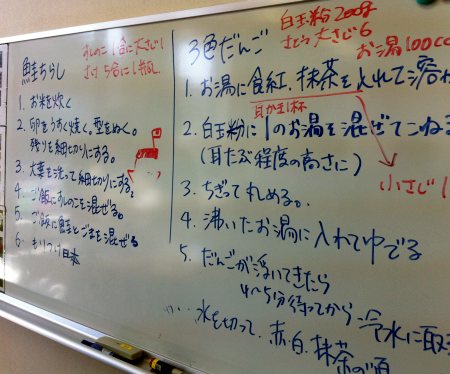 鮭ちらし
すしのこ 1合に大さじ1
さけ 5合に1瓶
1. お米を炊く
2. 卵をうすく焼く。型をぬく。
残りを細切りにする。
3. 大葉を洗って細切りにする。
4. ご飯にすしのこを混ぜる。
5. ご飯に鮭とごまを混ぜる
6. もりつけ
3色だんご
白玉粉200g
さとう大さじ6
お湯100cc
1. お湯に食紅、抹茶を入れて溶か
耳かき1杯
小さじ1
2. 白玉粉に1のお湯を混ぜてこねる
(耳たぶ程度の高さに)
3. ちぎって丸める。
4. 沸いたお湯に入れてゆでる
5. だんごが浮いてきたら
4〜5分待ってから冷水に取
水を切って、赤、白、抹茶の順